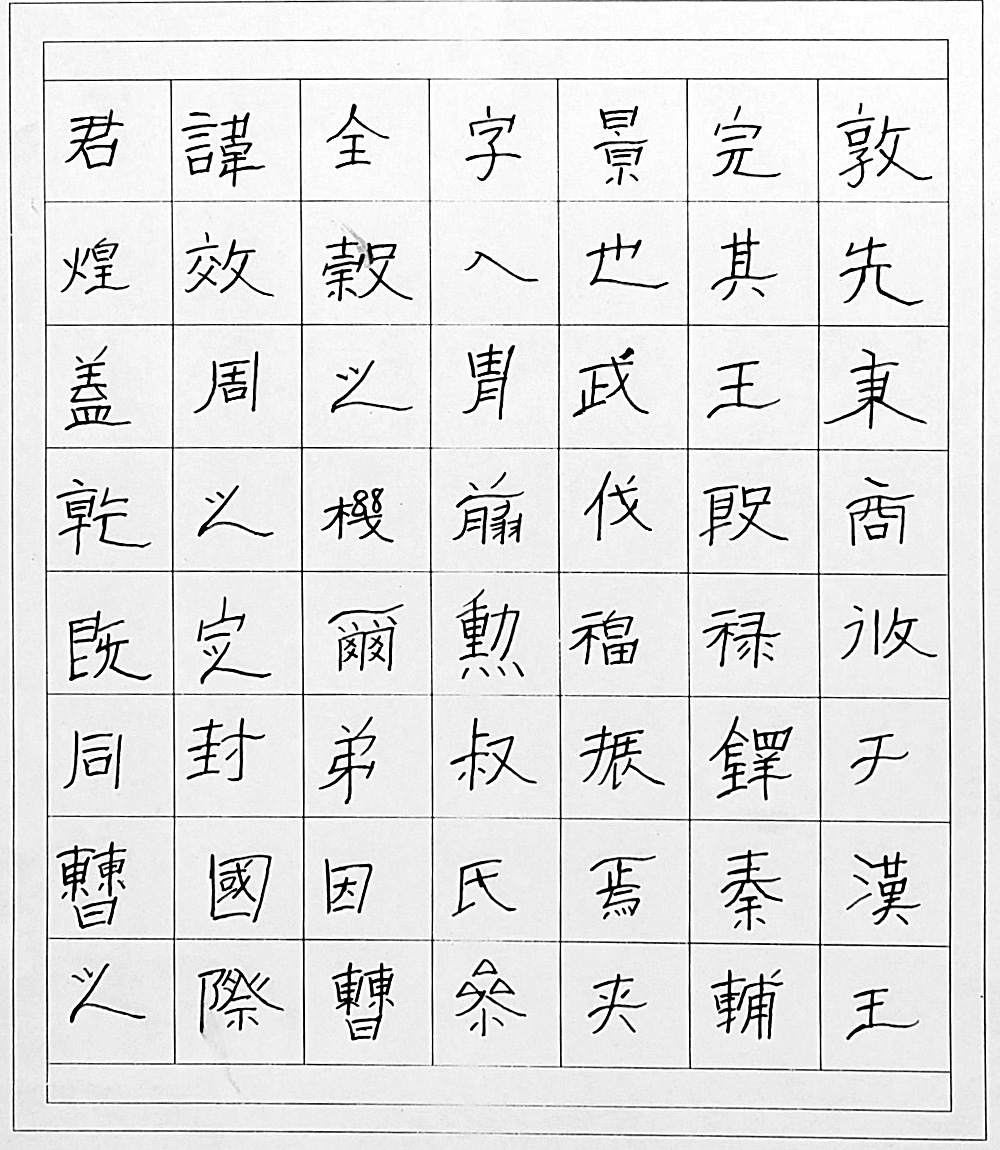 君諱全字景完敦
煌效穀人也其先
蓋周之胄武王秉
乾之機翦伐殷商
既定爾勳福禄攸
同封弟叔振鐸于
曹國因氏焉秦漢
之際曹參夹輔王